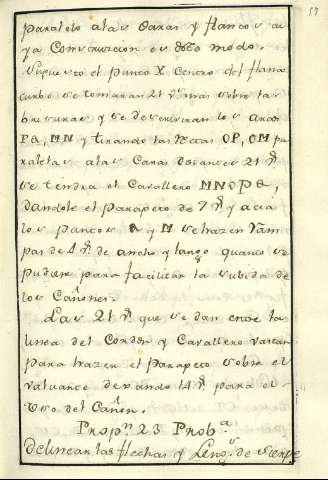 paralelo alas Caras y flancos cu
ya Construccion es dsto modo.
Supuesto el punto X Centro del flanco
curbo se tomaran 21 vs mas sobre las
bresuras y se descriviran los arcos
PQ, MN y tirando las rectas OP, OM pa
ralelas alas Caras distantes 21 vs
se tendra el Cavallero MNOPQ,
dandole el parapeto de 7 vs y acia
los puntos Q y N se trazen Ram
pas de 4 vs de ancho y largo quanto se
pudiese para facilitar la subida de
los Cañones.
Las 21 vs que se dan entre la
linea del Cordon y Cavallero vastan
para trazer el parapeto sobre el
valuarte dexando 14 vs para el
Uso del Cañon.
Propn 23 Proba
Delinear las flechas y Lengs de Sierpe
17